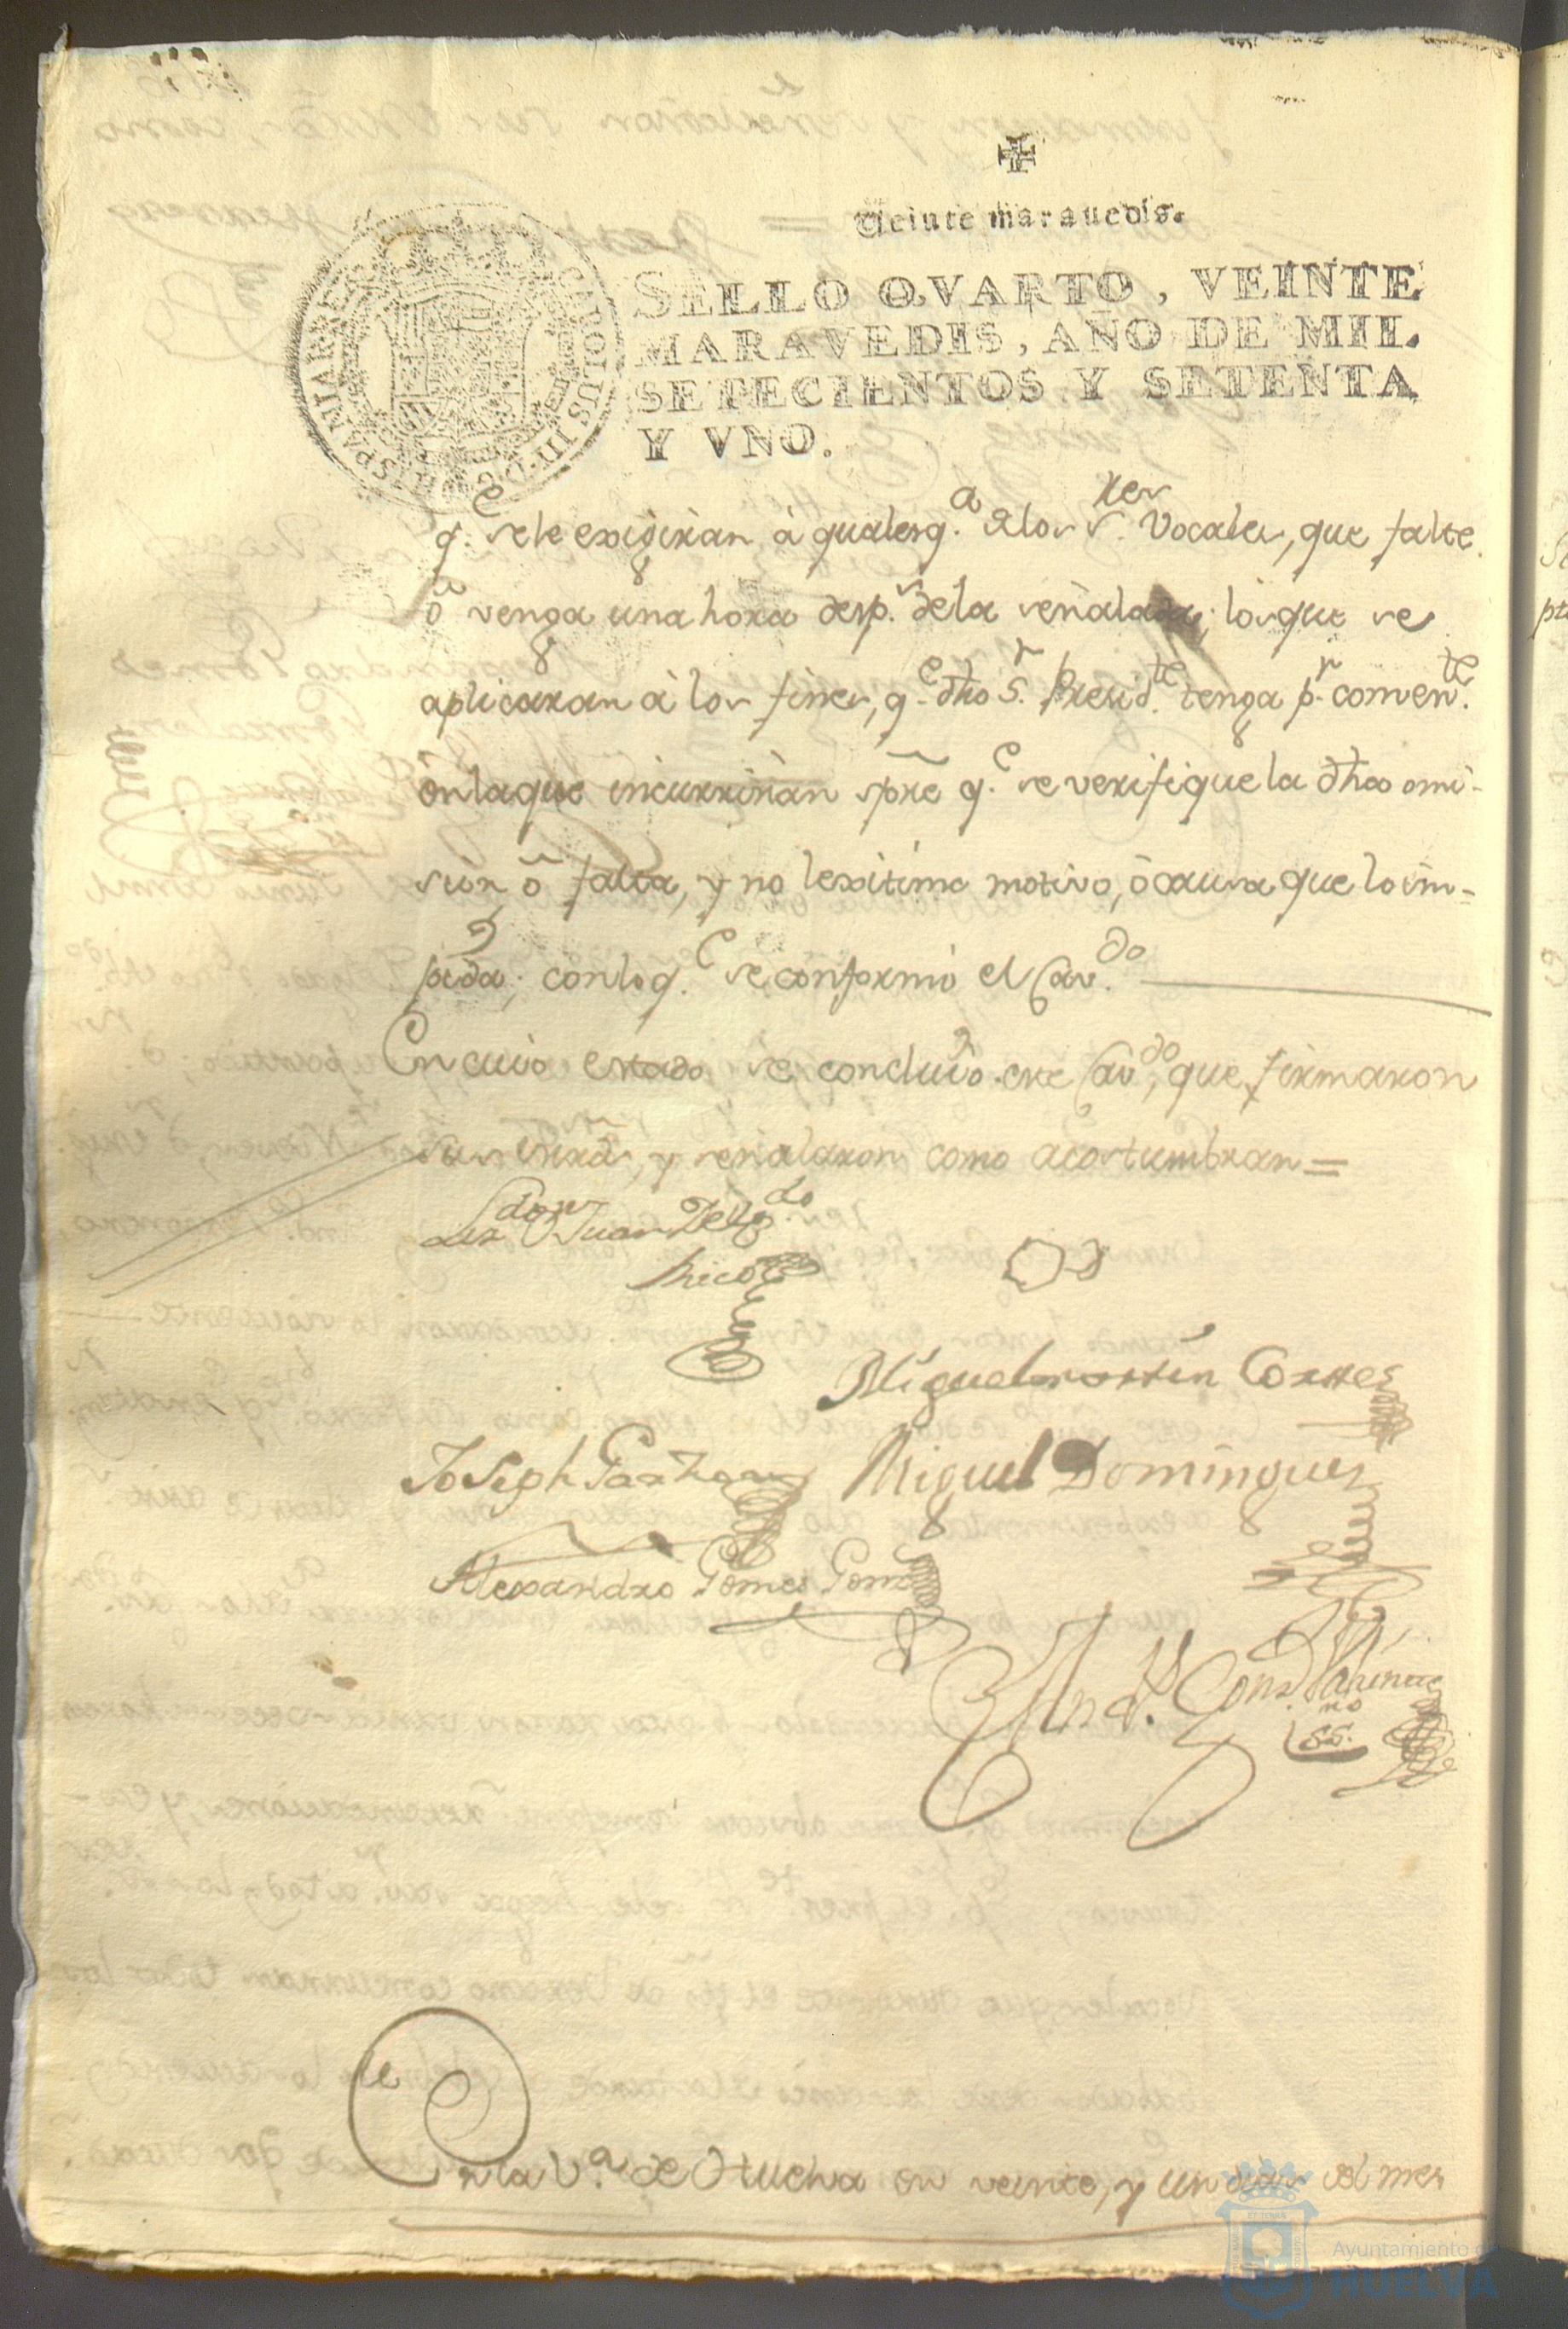 Veinte marauedis.
SELLO QVARTO, VEINTE
MARAVEDIS, AÑO DE MIL
SETECIENTOS Y SETENTA
Y VNO.
q.e se le exigiràn à qualesq.a de los s.res Vocales, que falte
ò venga una hora desp.s de la señalada; los que se
aplicaran à los fines, q.e dho S.r Presid.te tenga p.r conven.te
en la que incurriràn spre q.e se verifique la dha omi-
sion ò falta, y no lexitimo motivo, ò causa que lo im-
pida; con lo q.e se conformò el Cav.do
En cuio estado se concluiò este Cav.do, que firmaron
sus mrds, y señalaron como acostumbran=
Liz.do Dn Juan Delg.do
Rico
Miguel martin Cortes
Joseph Garzon
Miguel Dominguez
Alexandro Gomes Gom
ss.no
En la V.a de Huelva en veinte, y un dias del mes
Ayuntamiento de
HUELVA